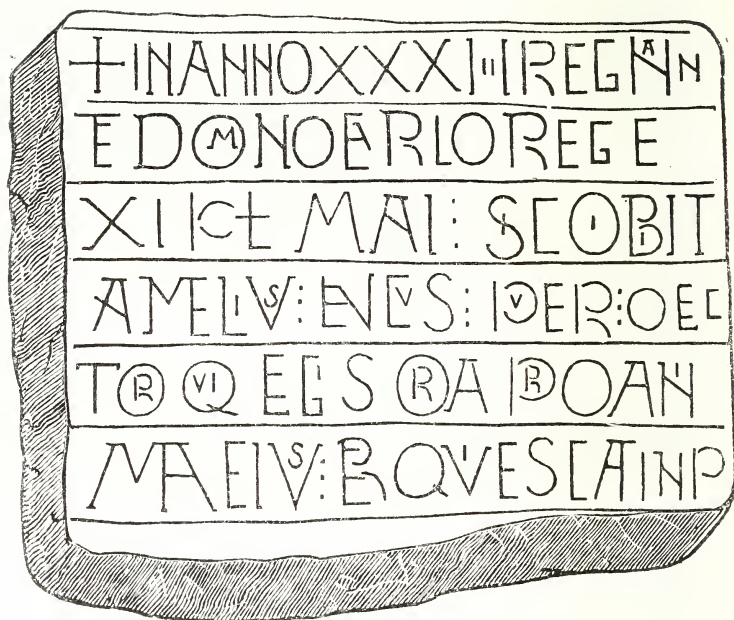 + IN ANNO XXXIIII REGNAN
TE DOMNO KARLO REGE
XI KL MAI ⋮ SIC OBIIT
AMELIVS ⋮ PVER : O LEC
TOR QVI LEGIS ORA PRO ANI
MA EIVS ⋮ REQVIESCAT IN P